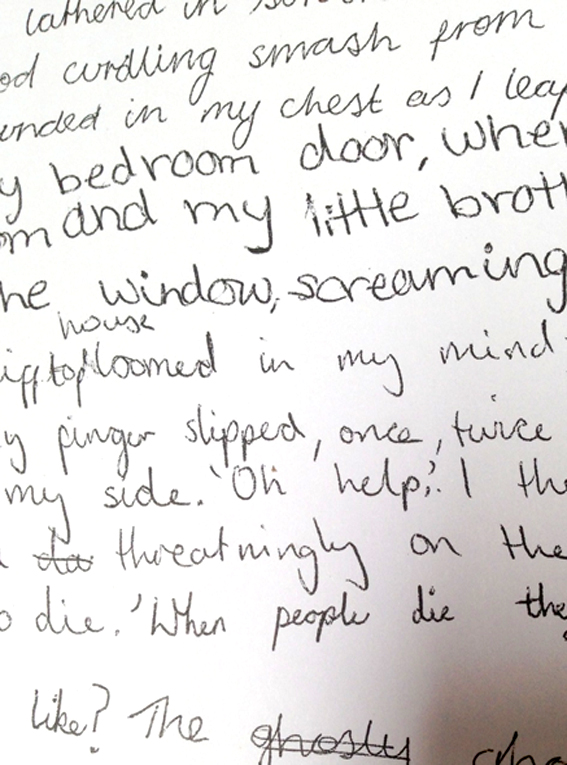 lathered in
od curdling smash from
unded in my chest as I leap
y bedroom door, wher
om and my little broth
he window, screaming
house
loomed in my mind
y finger slipped, once, twice
my side. 'Oh help,' I th
threatningly on the
o die. 'When people die the
like? The ghostly